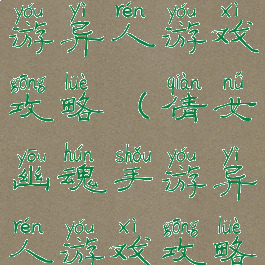 yóu yì rén yóu xì
游异人游戏
gōng lüè qiàn nǚ
攻略（倩女
yōu hún shǒu yóu yì
幽魂手游异
rén yóu xì gōng lüè
人游戏攻略